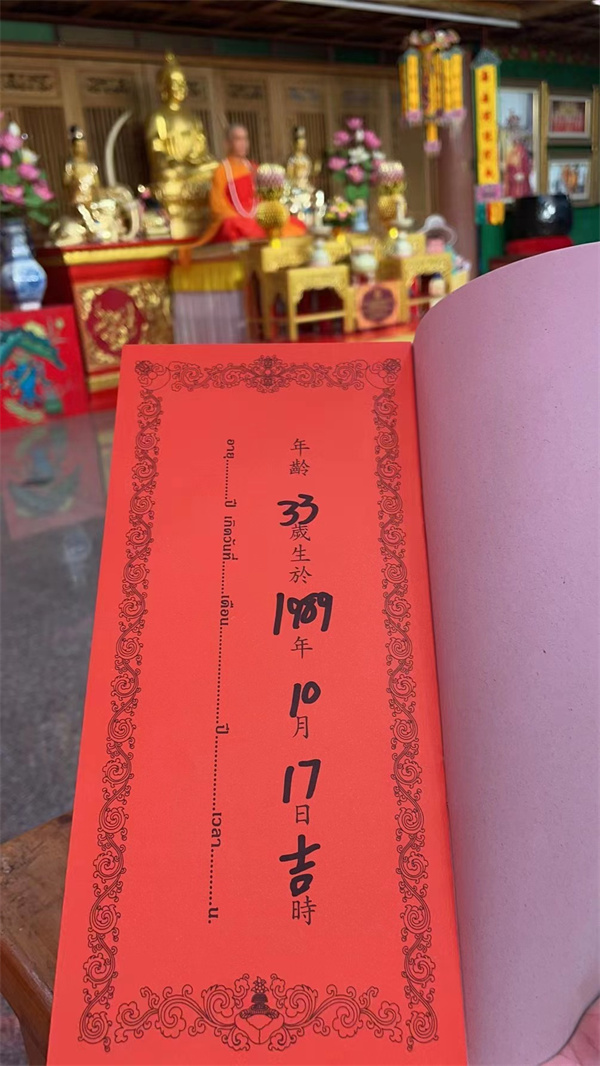 年齡 33 歲生於 1989 年 10 月 17 日 吉 時
อายุ............ปี เกิดวันที่............เดือน........................ปี....................เวลา............น.